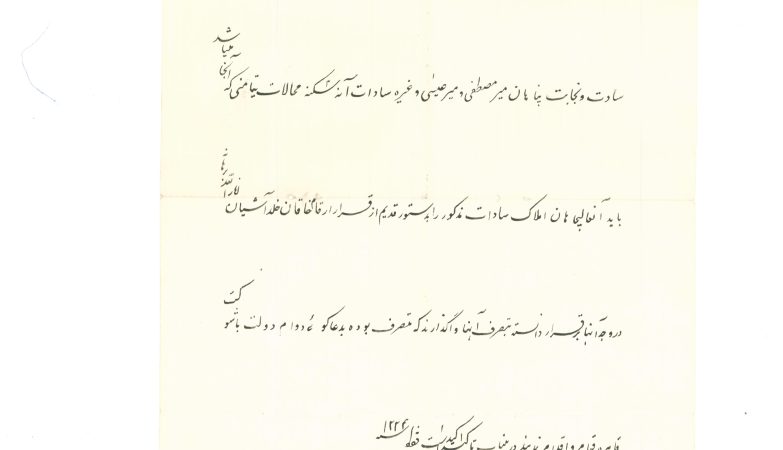 سادت و نجابت پناهان میر مصطفی و میر عیسی و غیره سادات آنه شکنه محالات تیامنی که آنجا میباشد
باید آنعالیجاهان املاک سادات مذکور را بدستور قدیم از قرار ارقام خاقان خلد آشیان انارالله برهانه
در وجه آنها برقرار دانسته بتصرف آنها واگذارند که متصرف بوده بدعاگوئی دوام دولت
قیام و اقدام نمایند در تاکید ۱۲۲۴